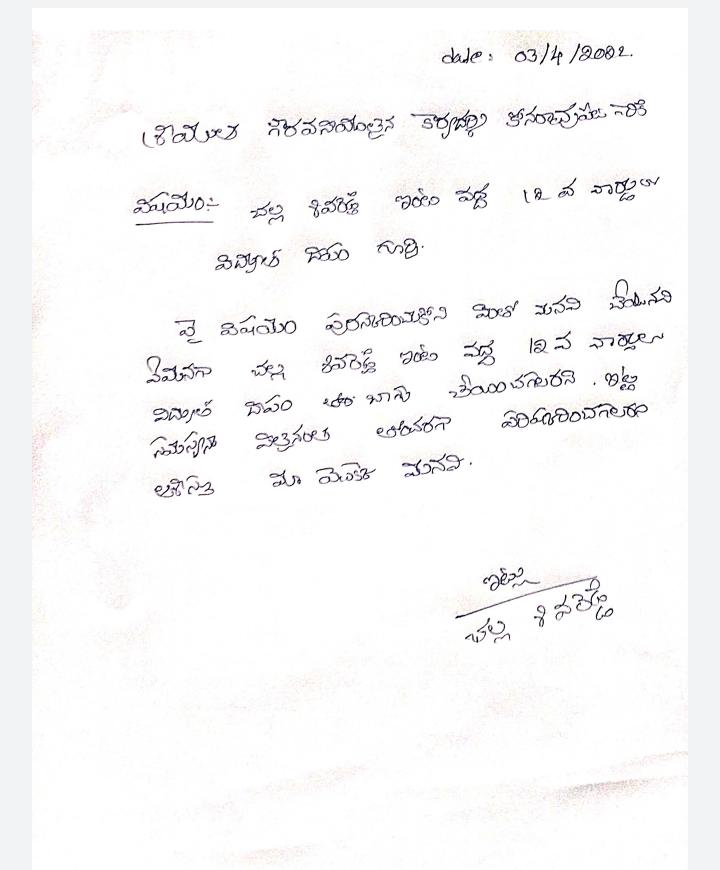 date: 03/4/2022.
శ్రీయుత గౌరవనీయులైన కార్యదర్శి కోనరావుపేట గారికి
విషయం:- చల్ల శివరెడ్డి ఇంటి వద్ద 12 వ వార్డులు
విద్యుత్ దీపం గూర్చి.
పై విషయం పురస్కరించుకొని మీతో మనవి చేయునది
ఏమనగా చల్ల శివరెడ్డి ఇంటి వద్ద 12 వ వార్డులు
విద్యుత్ దీపం బాగు చేయించగలరని. ఇట్టి
సమస్యను వీలైనంత తొందరగా పరిష్కరించగలరని
ఆశిస్తూ మా యొక్క మనవి.
ఇట్లు
చల్ల శివరెడ్డి